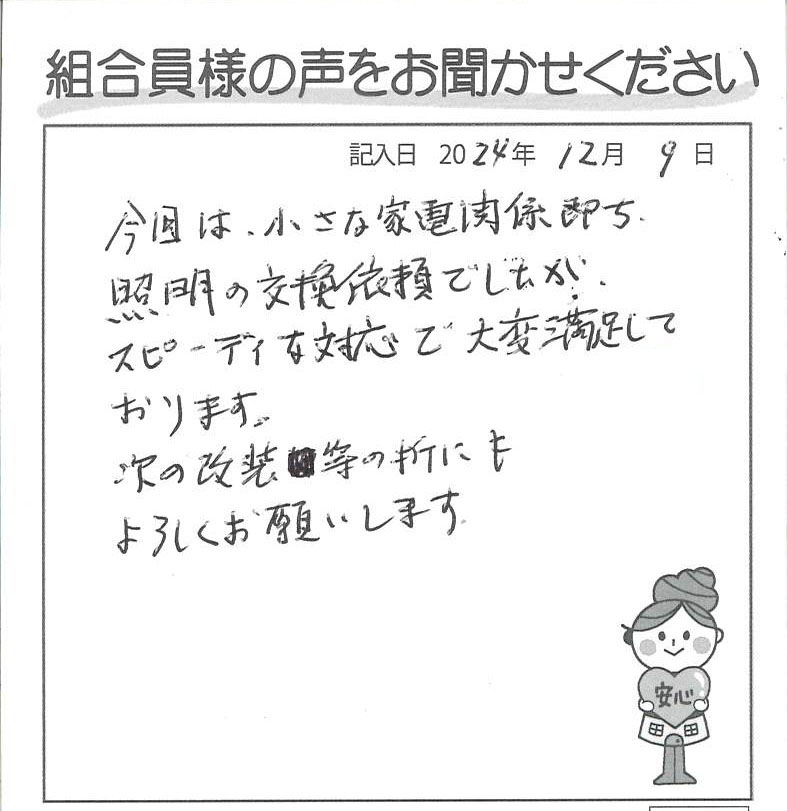 組合員様の声をお聞かせください
記入日 2024年 12月 9日
今回は、小さな家電関係即ち、
照明の交換依頼でしたが、
スピーディな対応で大変満足して
おります。
次の改装等の折にも
よろしくお願いします。
安心